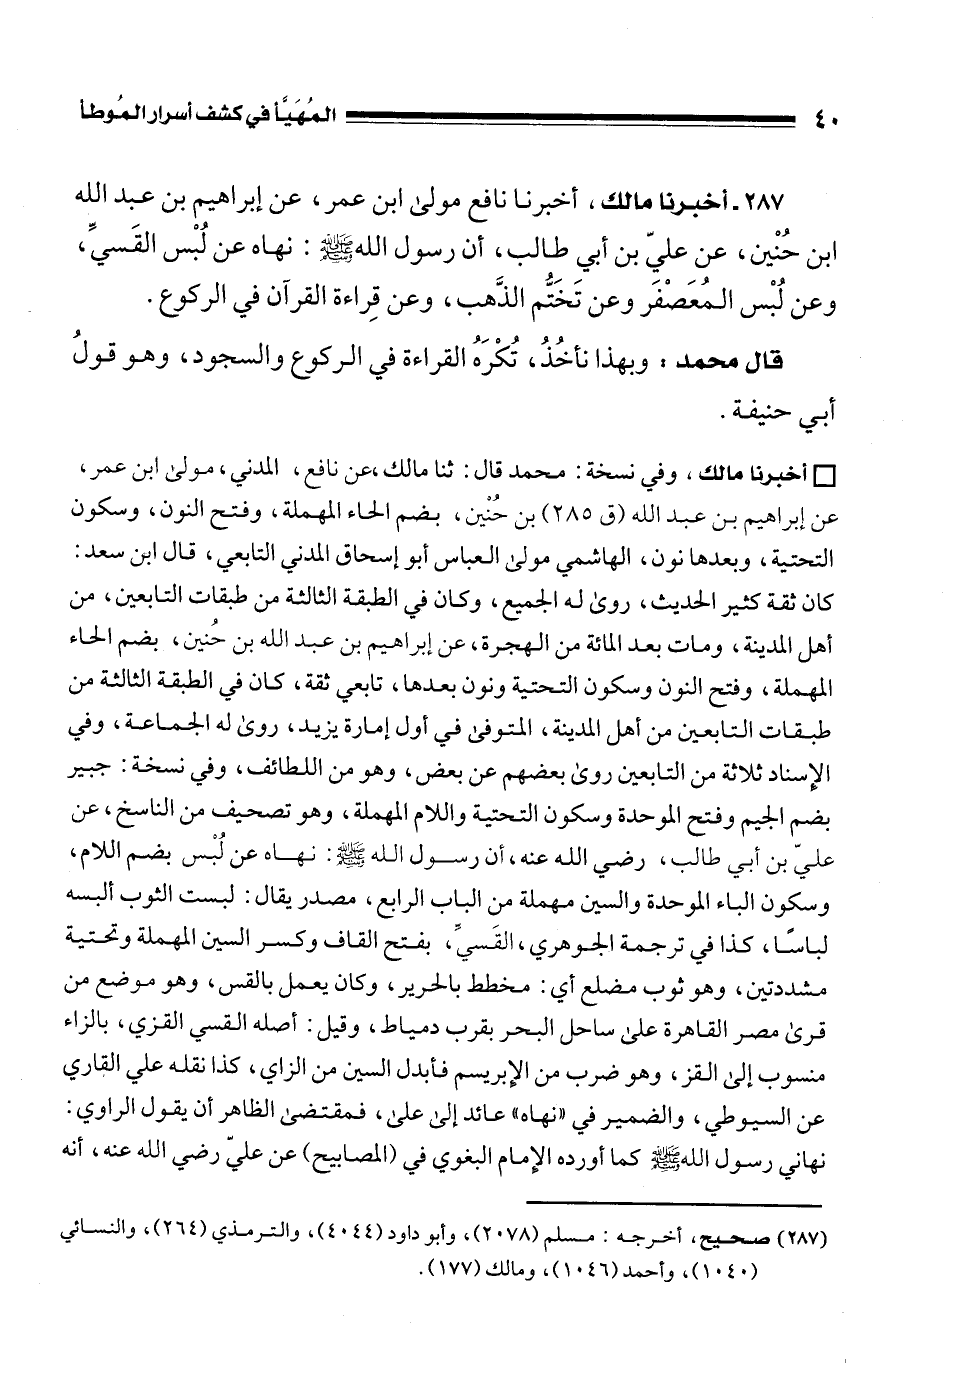 ٤٠ المُهَيَّأ في كشف أسرار الموُطأ
٢٨٧ ـ أخبرنا مالك، أخبرنا نافع مولىٰ ابن عمر، عن إبراهيم بن عبد الله
ابن حُنْين، عن عليّ بن أبي طالب، أن رسول الله ﷺ : نهاه عن لُبْس القَسيِّ،
وعن لُبْس المُعَصْفَر وعن تَخَتُّم الذَّهب، وعن قِراءة القرآن في الركوع.
قال محمد : وبهذا نأخُذُ، تُكْرَهُ القراءة في الركوع والسجود، وهو قولُ
أبي حنيفة.
□ أخبرنا مالك، وفي نسخة: محمد قال: ثنا مالك، عن نافع، المدني، مولىٰ ابن عمر،
عن إبراهيم بن عبد الله (ق ٢٨٥) بن حُنْين، بضم الحاء المهملة، وفتح النون، وسكون
التحتية، وبعدها نون، الهاشمي مولىٰ العباس أبو إسحاق المدني التابعي، قال ابن سعد:
كان ثقة كثير الحديث، روىٰ له الجميع، وكان في الطبقة الثالثة من طبقات التابعين، من
أهل المدينة، ومات بعد المائة من الهجرة، عن إبراهيم بن عبد الله بن حُنين، بضم الحاء
المهملة، وفتح النون وسكون التحتية ونون بعدها، تابعي ثقة، كان في الطبقة الثالثة من
طبقات التابعين من أهل المدينة، المتوفىٰ في أول إمارة يزيد، روىٰ له الجماعة، وفي
الإسناد ثلاثة من التابعين روىٰ بعضهم عن بعض، وهو من اللطائف، وفي نسخة: جبير
بضم الجيم وفتح الموحدة وسكون التحتية واللام المهملة، وهو تصحيف من الناسخ، عن
عليّ بن أبي طالب، رضي الله عنه، أن رسول الله ﷺ: نهاه عن لُبْس بضم اللام،
وسكون الباء الموحدة والسين مهملة من الباب الرابع، مصدر يقال: لبست الثوب ألبسه
لباسًا، كذا في ترجمة الجوهري، القَسيِّ، بفتح القاف وكسر السين المهملة وتحتية
مشددتين، وهو ثوب مضلع أي: مخطط بالحرير، وكان يعمل بالقس، وهو موضع من
قرىٰ مصر القاهرة علىٰ ساحل البحر بقرب دمياط، وقيل: أصله القسي القزي، بالزاء
منسوب إلىٰ القز، وهو ضرب من الإبريسم فأبدل السين من الزاي، كذا نقله علي القاري
عن السيوطي، والضمير في «نهاه» عائد إلىٰ علىٰ، فمقتضىٰ الظاهر أن يقول الراوي:
نهاني رسول الله ﷺ كما أورده الإمام البغوي في (المصابيح) عن عليّ رضي الله عنه، أنه
(٢٨٧) صحيح، أخرجه : مسلم (٢٠٧٨)، وأبو داود (٤٠٤٤)، والترمذي (٢٦٤)، والنسائي
(١٠٤٠)، وأحمد (١٠٤٦)، ومالك (١٧٧).